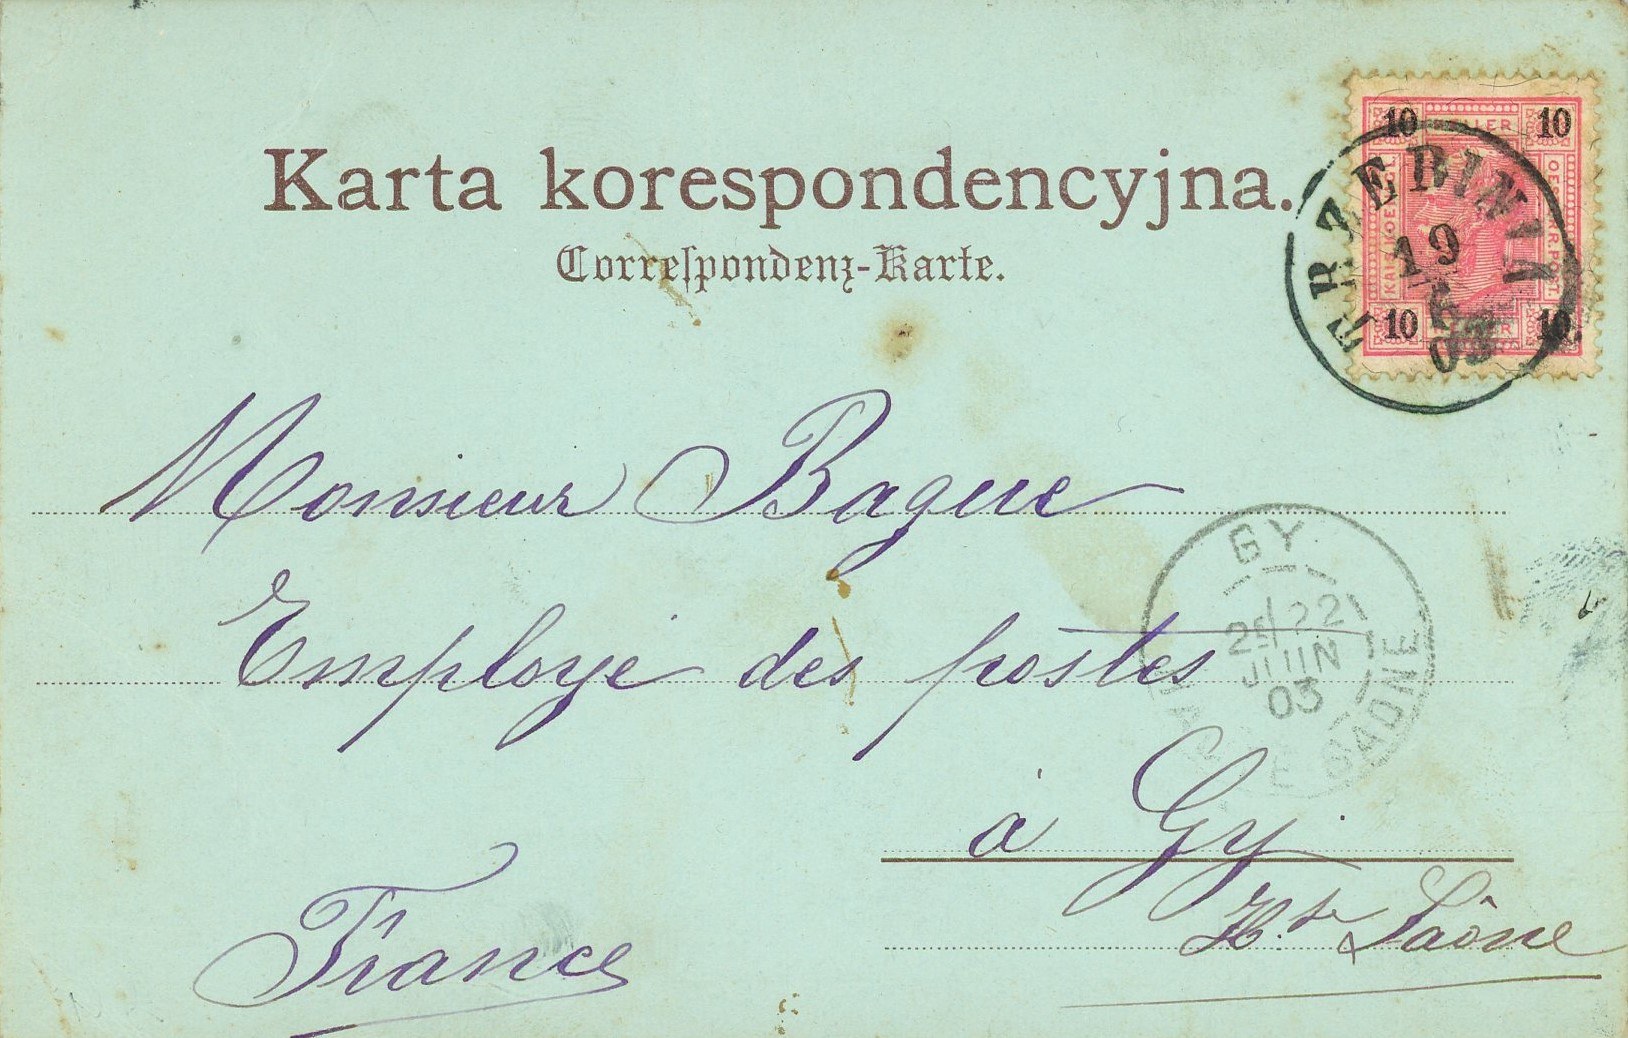 Karta korespondencyjna.
Correspondenz-Karte.
10 HELLER 10
KAIS. KOENIGL.
OESTERR. POST.
10 10
TRZEBINIA
19
6
03
Monsieur Bague
Employé des postes
à Gy
Hte Saône
France
GY
22
JUIN
03
HAUTE SAONE